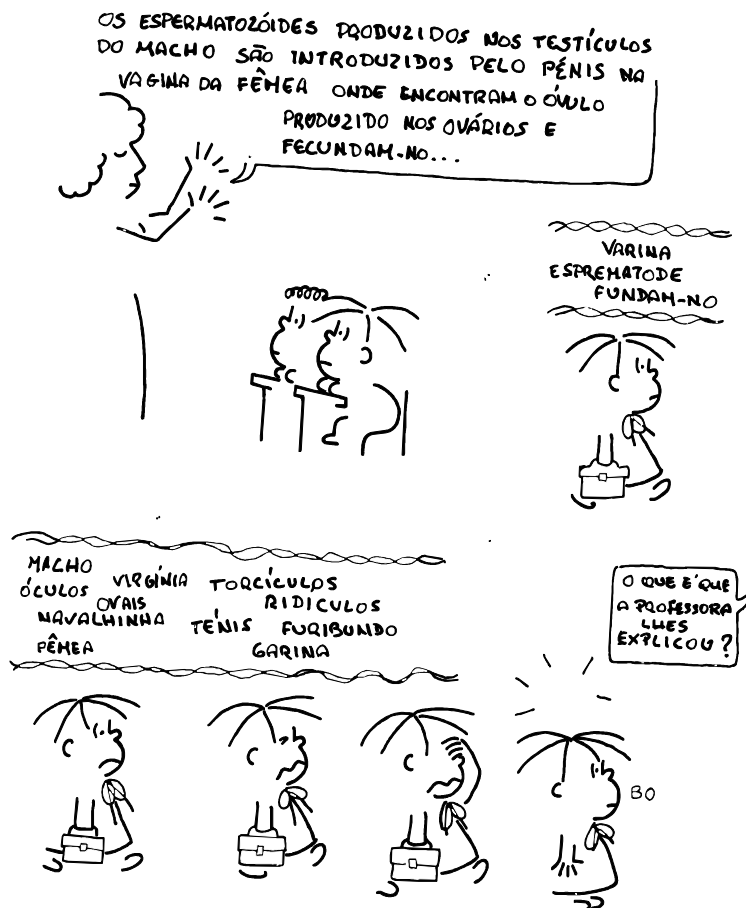 OS ESPERMATOZÓIDES PRODUZIDOS NOS TESTÍCULOS
DO MACHO SÃO INTRODUZIDOS PELO PÉNIS NA
VAGINA DA FÊMEA ONDE ENCONTRAM O ÓVULO
PRODUZIDO NOS OVÁRIOS E
FECUNDAM-NO...
VARINA
ESPREMATODE
FUNDAM-NO
MACHO
ÓCULOS VIRGÍNIA TORCÍCULOS
OVAIS RIDICULOS
NAVALHINHA TÉNIS FURIBUNDO
PÊMEA GARINA
O QUE É QUE
A PROFESSORA
LHES
EXPLICOU?
BO